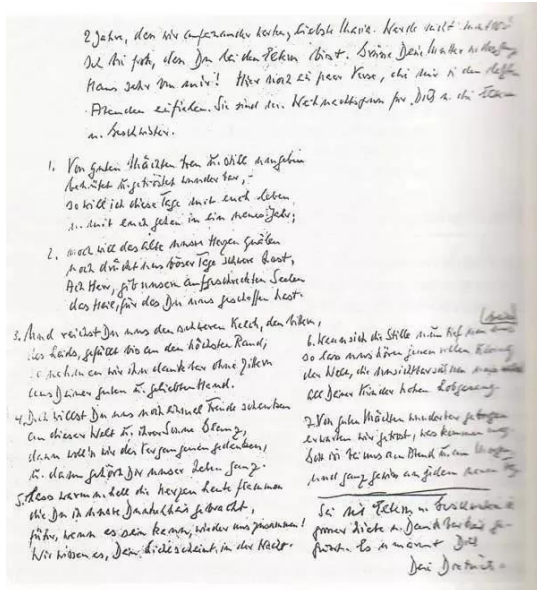 2 Jahre, daß wir aufeinander warten, liebste Maria. Werde nicht mutlos!
Ich bin froh, daß Du bei den Eltern bist. Grüße Deine Mutter u. das ganze
Haus sehr von mir! Hier noch ein paar Verse, die mir in den letzten
Abenden einfielen. Sie sind der Weihnachtsgruß für Dich u. die Eltern
u. Geschwister.
1. Von guten Mächten treu u. still umgeben
behütet u. getröstet wunderbar, –
so will ich diese Tage mit euch leben
u. mit euch gehen in ein neues Jahr;
2. noch will das alte unsre Herzen quälen
noch drückt uns böser Tage schwere Last,
Ach Herr, gib unsern aufgeschreckten Seelen
das Heil, für das Du uns geschaffen hast.
3. Und reichst Du uns den schweren Kelch, den bittern,
des Leids, gefüllt bis an den höchsten Rand,
so nehmen wir ihn dankbar ohne Zittern
aus Deiner guten u. geliebten Hand.
4. Doch willst Du uns noch einmal Freude schenken
an dieser Welt u. ihrer Sonne Glanz,
dann woll'n wir des Vergangenen gedenken,
u. dann gehört Dir unser Leben ganz.
5. Lass warm u. hell die Kerzen heute flammen
die Du in unsre Dunkelheit gebracht,
führ, wenn es sein kann, wieder uns zusammen!
Wir wissen es, Dein Licht scheint in der Nacht.
6. Wenn sich die Stille nun tief um uns
so lass uns hören jenen vollen Klang
der Welt, die unsichtbar sich um uns
all Deiner Kinder hohen Lobgesang.
7. Von guten Mächten wunderbar geborgen
erwarten wir getrost, was kommen mag.
Gott ist bei uns am Abend u. am Morgen
und ganz gewiss an jedem neuen Tag.
Sei mit Eltern u. Geschwistern in
grosser Liebe u. Dankbarkeit
gegrüßt. Es umarmt Dich
Dein Dietrich.